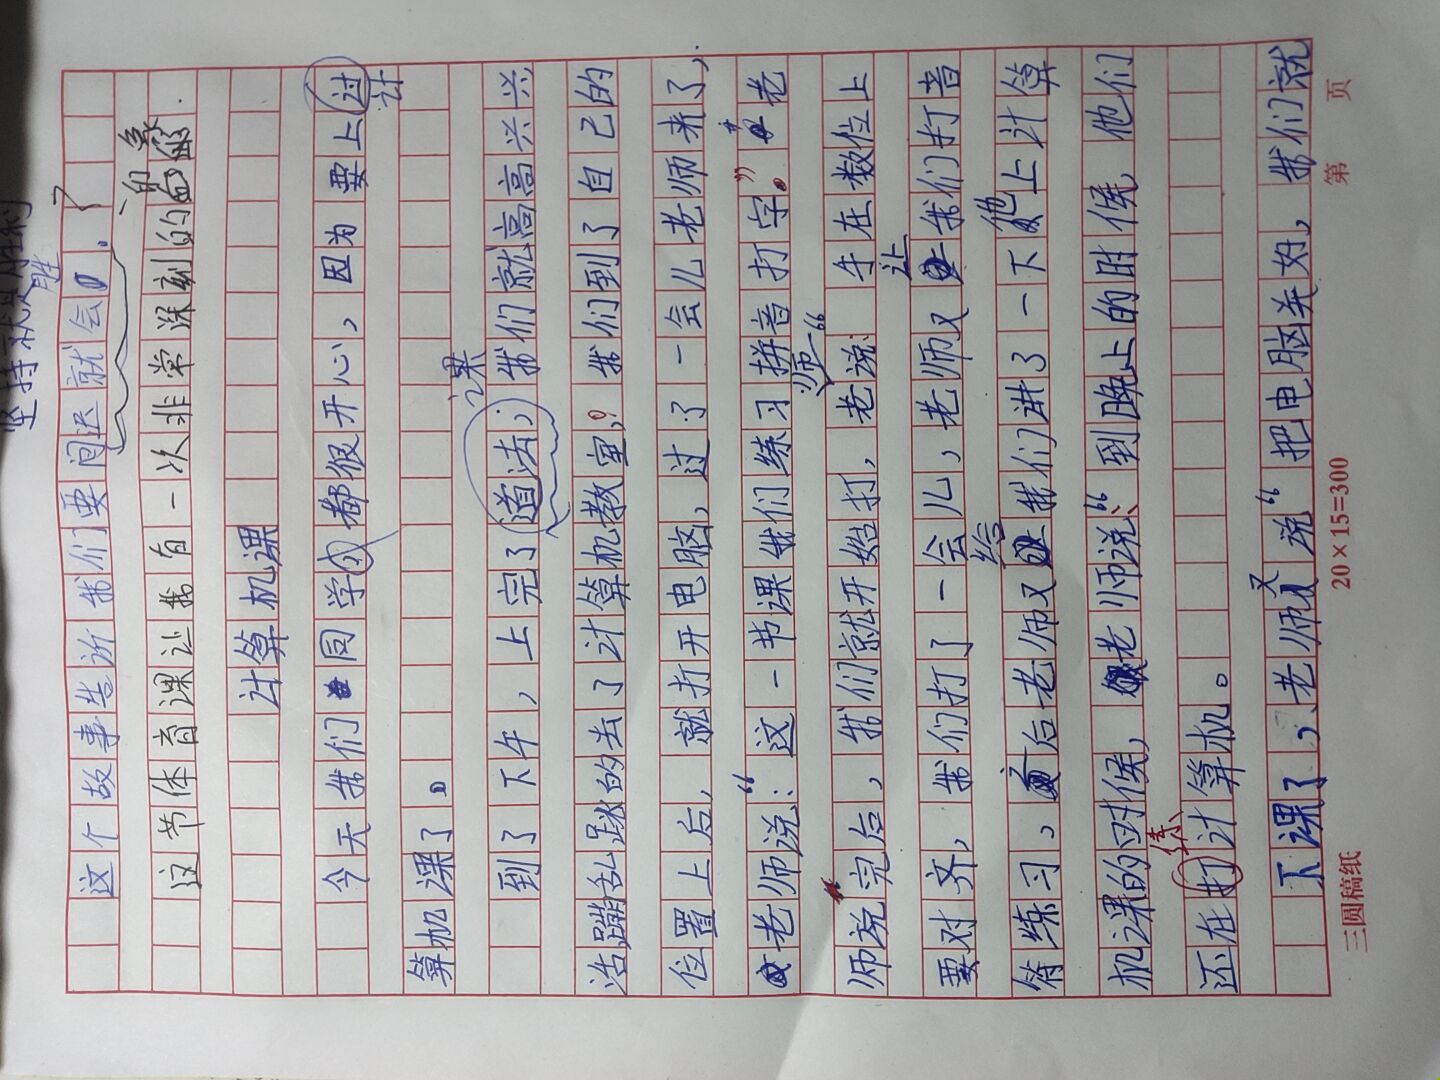 坚持就是胜利
胜
这个故事告诉我们要
就会
一印象
这节体育课让我有一次非常深刻的
计算机课
今天我们同学都很开心，因为要上过
计
算机课了。
课
到了下午，上完了道法，我们就高高兴兴
活蹦乱跳的去了计算机教室，我们到了自己的
位置上后，就打开电脑，过了一会儿老师来了，
老师说：“这一节课我们练习拼音打字。”老
师“
师说完后，我们就开始打，老说：手在数位上
让
要对齐，我们打了一会儿，老师又我们打音
给 他
符练习，后老师又我们讲了一下上计算
机课的时候，老师说：“到晚上的时候，他们
练
还在打计算机。
又
下课了，老师说“把电脑关好，我们就
三圆稿纸
20×15=300
第 页